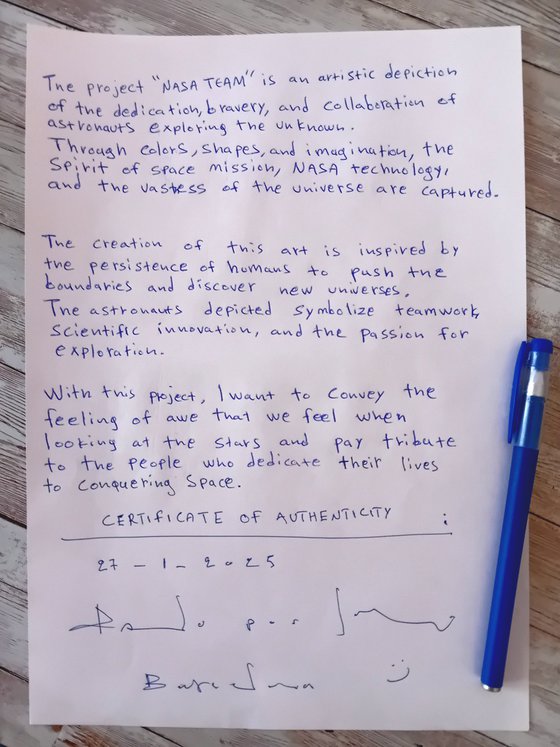 The project "NASA TEAM" is an artistic depiction
of the dedication, bravery, and collaboration of
astronauts exploring the unknown.
Through colors, shapes, and imagination, the
Spirit of space mission, NASA technology,
and the vastess of the universe are captured.
The creation of this art is inspired by
the persistence of humans to push the
boundaries and discover new universes.
The astronauts depicted symbolize teamwork,
scientific innovation, and the passion for
exploration.
With this project, I want to convey the
feeling of awe that we feel when
looking at the stars and pay tribute
to the people who dedicate their lives
to conquering Space.
CERTIFICATE OF AUTHENTICITY :
27 - 1 - 2025
Barcelona :)